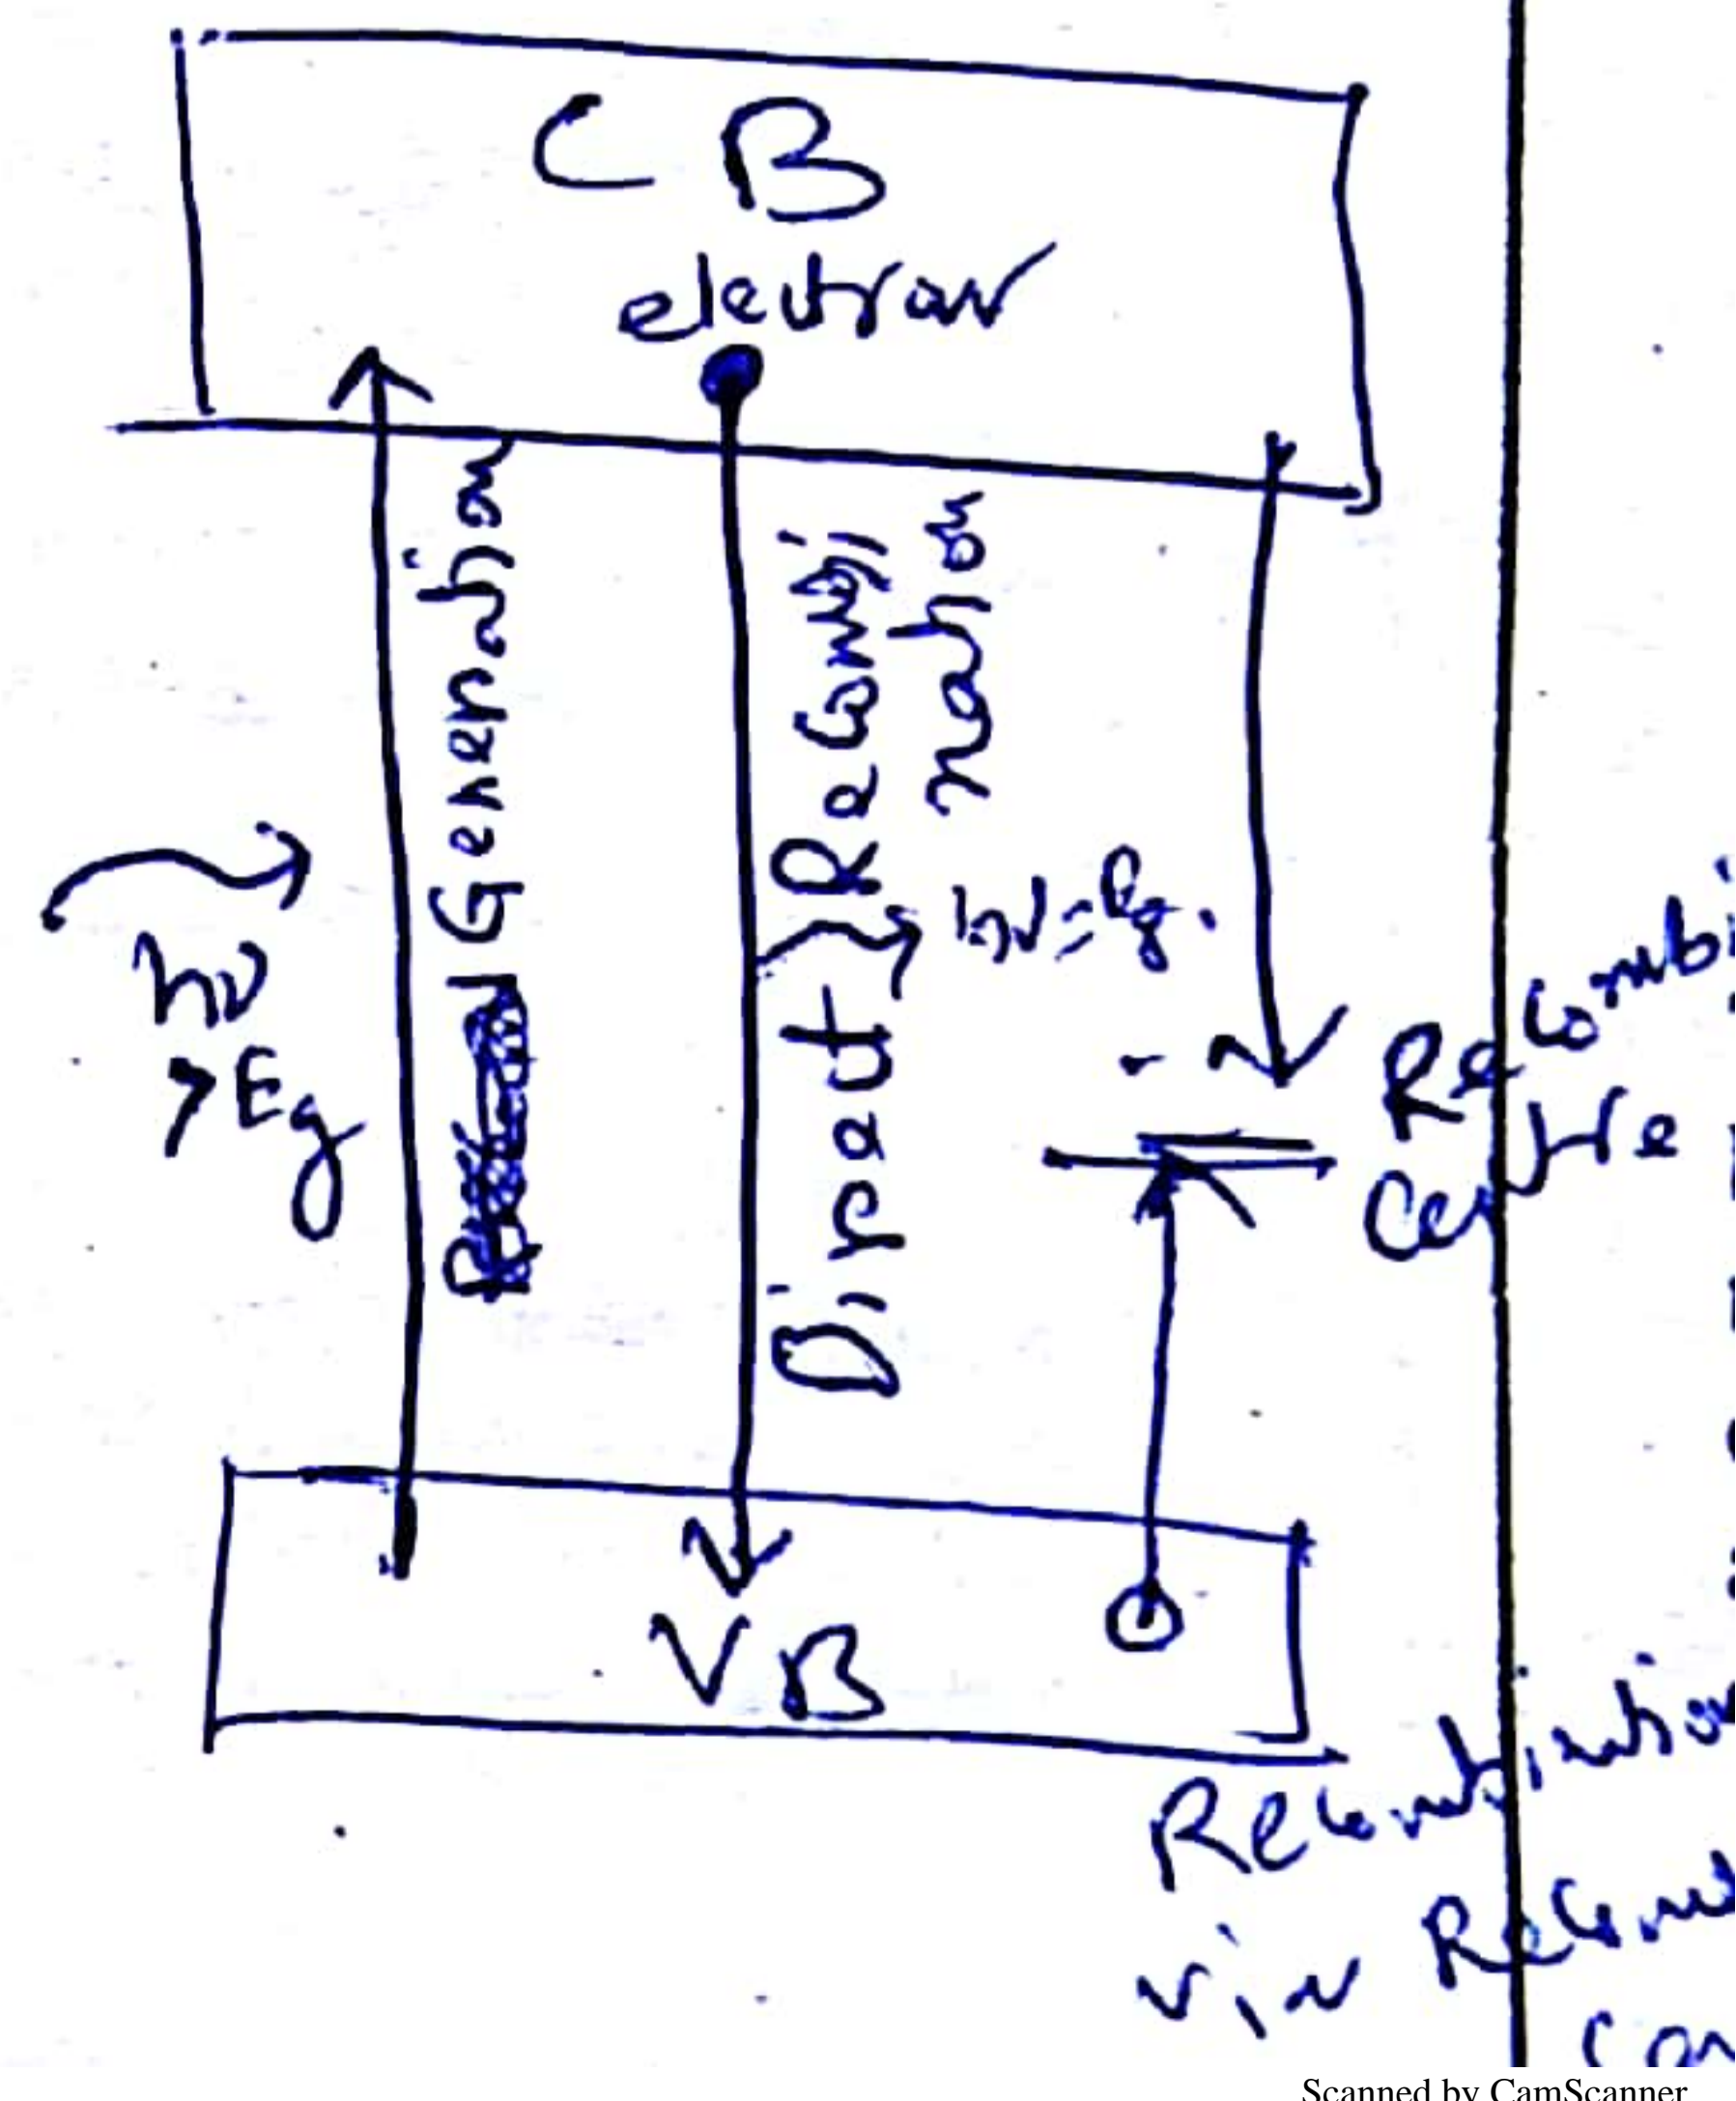 CB
electron
Generation
Direct Recombi
nation
hν
>Eg
hν=Eg.
Recombi
Centre
VB
Recombination
via Recom
Scanned by CamScanner